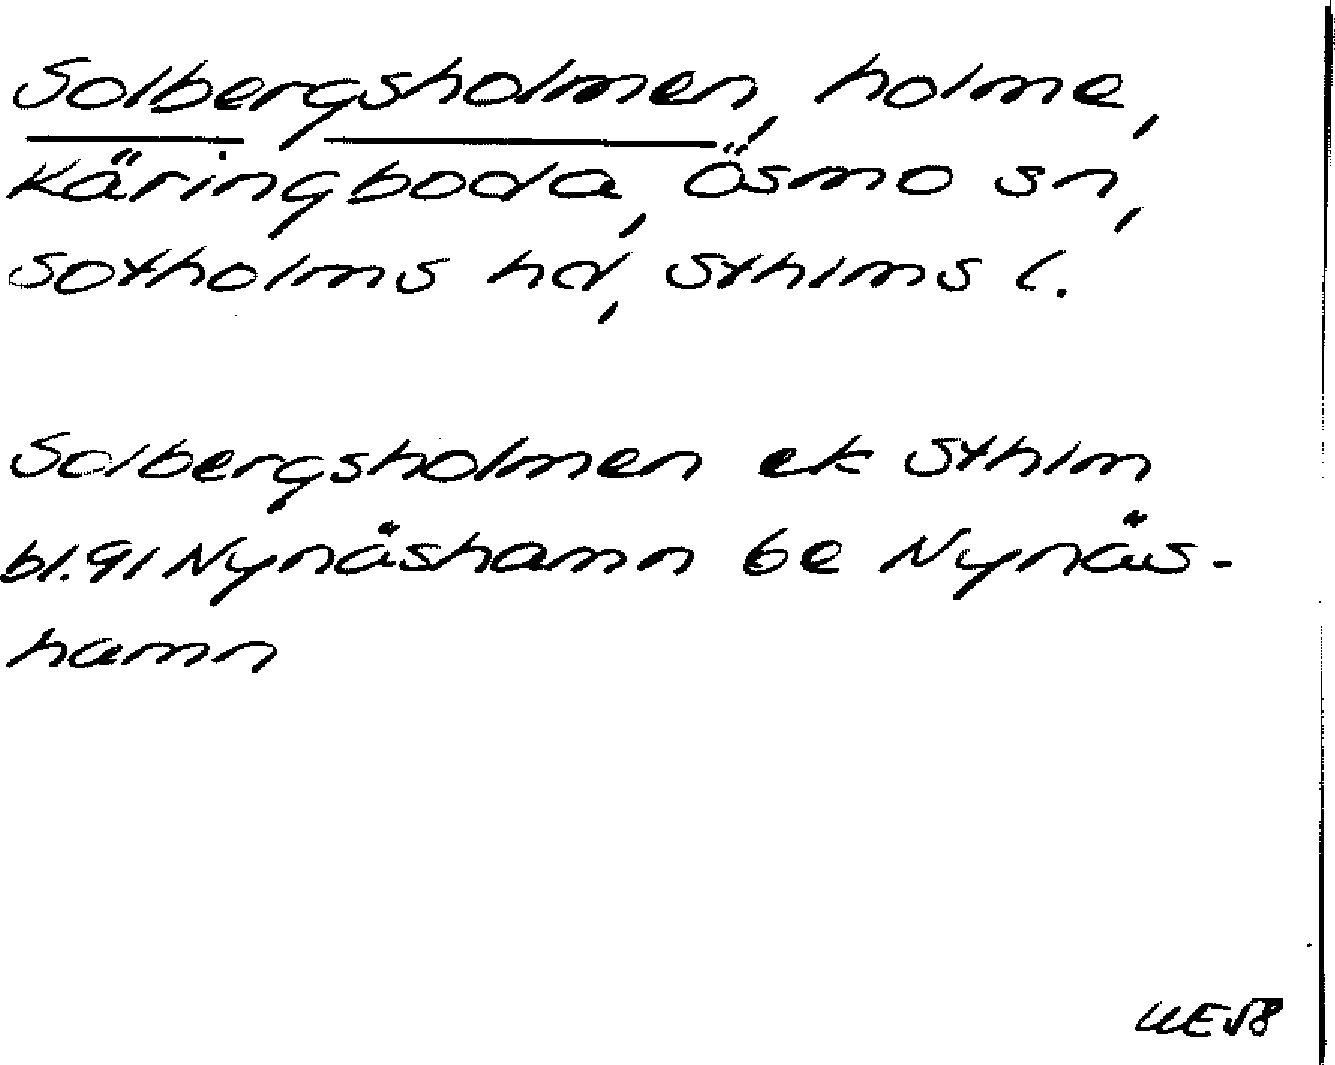 Solbergsholmen, holme,
Käringboda, Ösmo sn,
Sotholms hd, Sthlms l.
Solbergsholmen ek Sthlm
bl. 91 Nynäshamn be Nynäs-
hamn